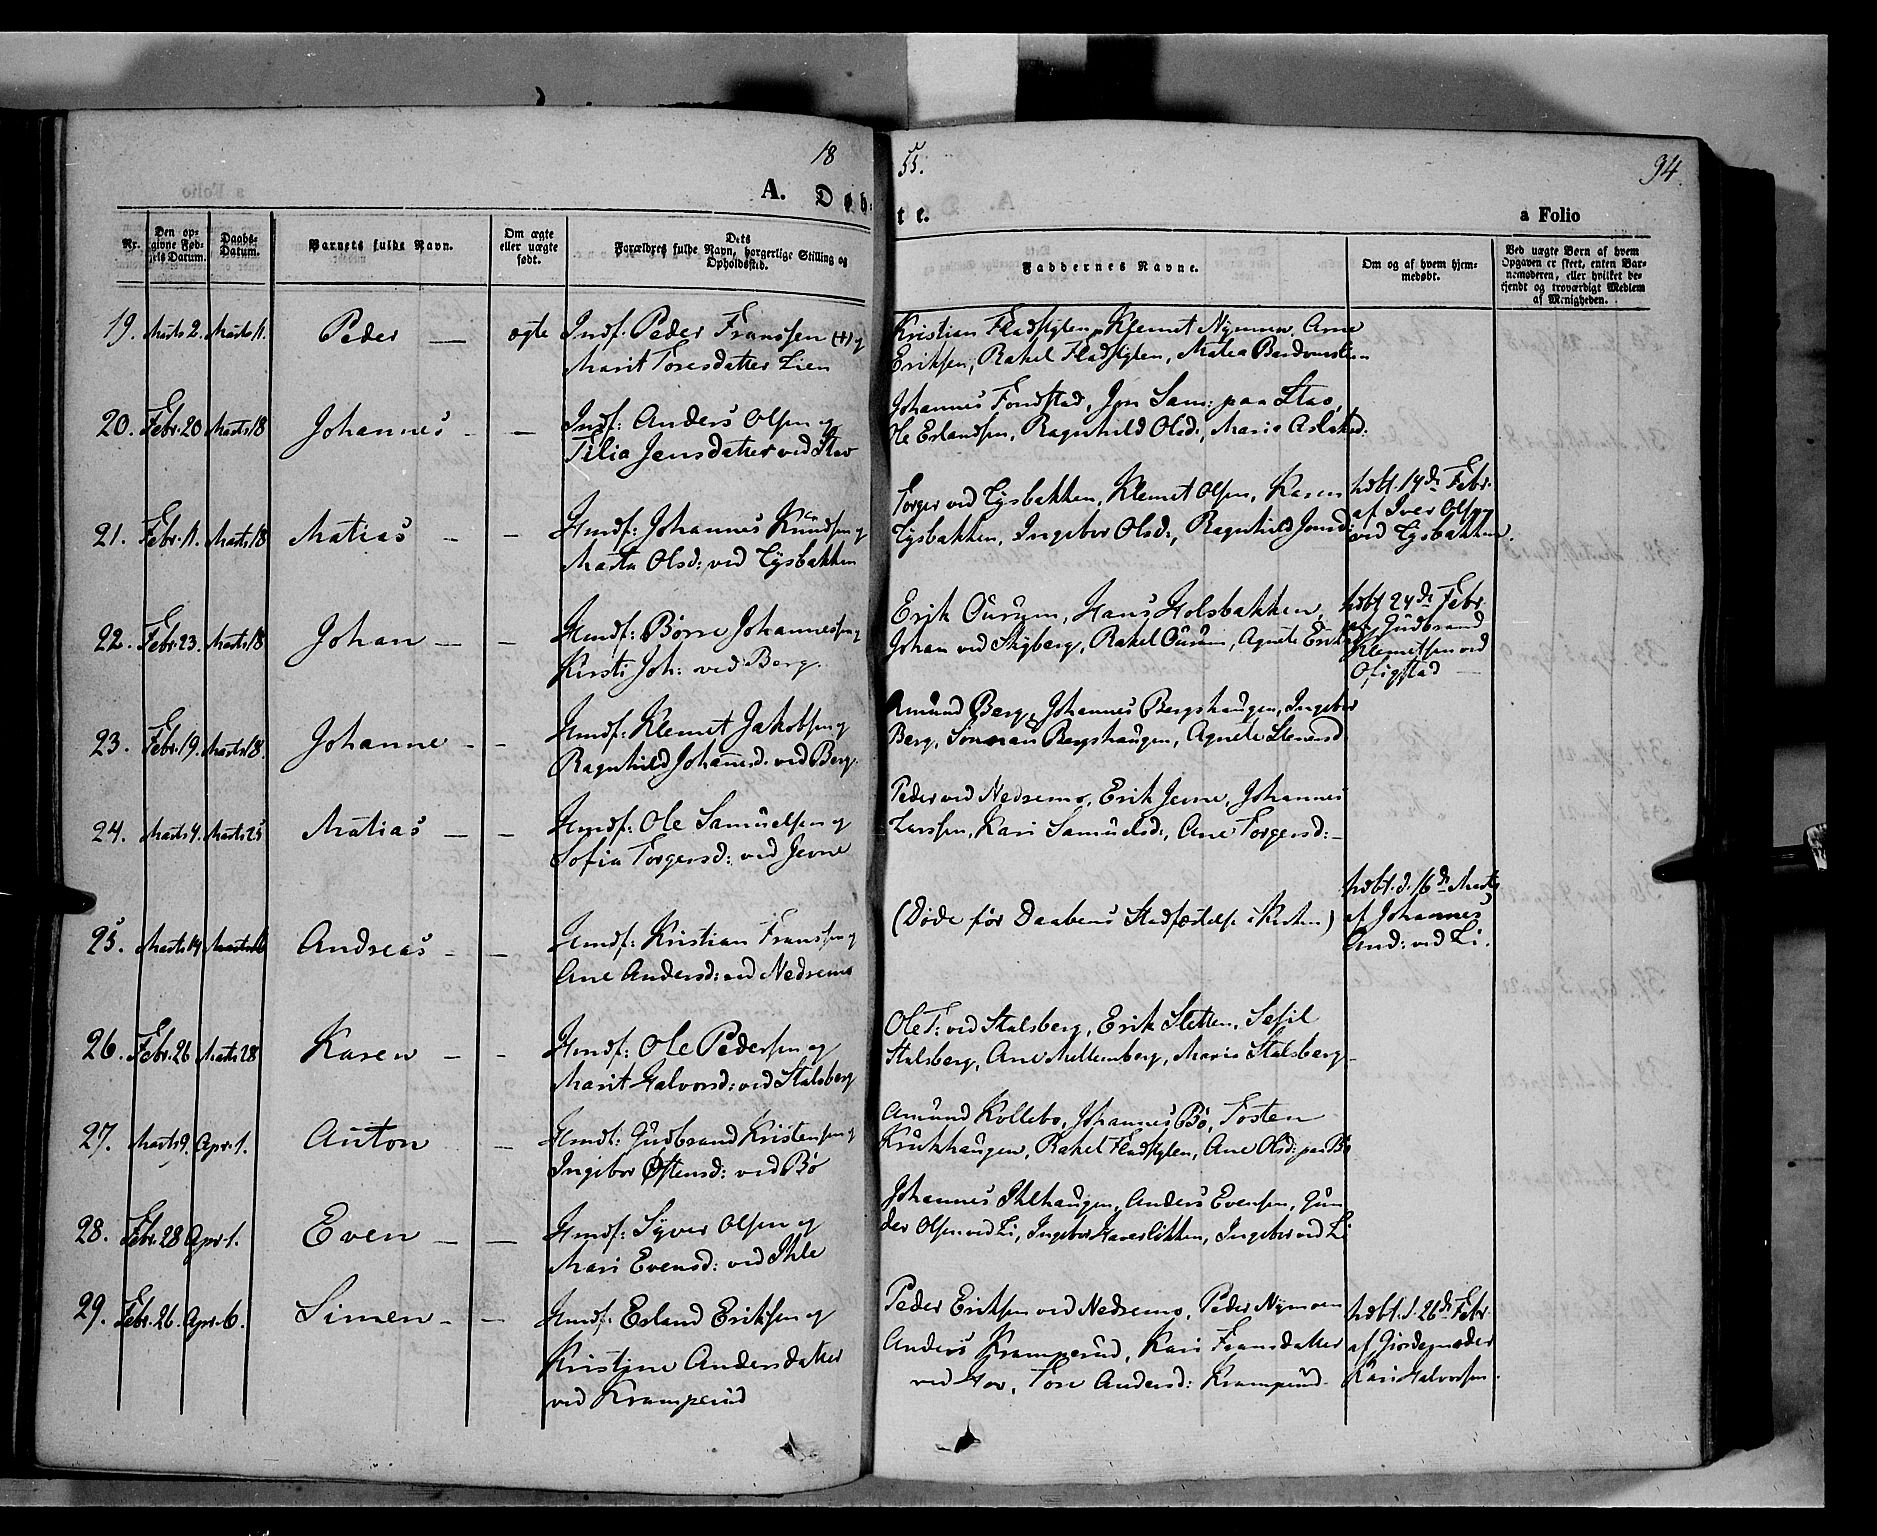 1855.
94.
A. Døbte.
a Folio
Nr.
Den opgivne Fødsels Datum.
Daabs-Datum.
Barnets fulde Navn.
Om ægte eller uægte født.
Dets Forældres fulde Navn, borgerlige Stilling og Opholdssted.
Faddernes Navne.
Om og af hvem hjemmedøbt.
Ved uægte Børn af hvem Opgaven er skeet, enten Barnemoderen, eller hvilket bekjendt og troværdigt Medlem af Menigheden.
19. Marts 2. Marts 11. Peder — ægte Indf: Peder Franssen (+) og
Marit Toresdatter Lien
Kristian Fladstylen, Klemet Nymoen, Arne
Eriksen, Rakel Fladstylen,
20. Febr. 20 Marts 18 Johannes - — Indf: Anders Olsen og
Jensdatter ved Stav
Johannes Fondstad, Jon Sam: paa Stav,
Ole Erlandsen, Ragnhild Olsd:, Marie
21. Febr. 11. Marts 18 Matias — — Hmdf: Johannes Knudsen og
Marta Olsd: ved Lysbakken
Torger ved Lysbakken, Klemet Olsen, Karen
Lysbakken, Ingebor Olsd:, Ragnhild Jonsd:
hdbt. 14de Febr.
af Iver Olsen
ved Lysbakken.
22. Febr. 23. Marts 18 Johan — — Hmdf: Børre Johannessen og
Kirsti Joh: ved Berg.
Erik Hans Holsbakken,
Johan ved Rakel Agnete
hdbt 24de Febr.
af Gudbrand
Klemetsen ved
23. Febr. 19. Marts 18. Johanne - - Hmdf: Klemet Jakobsen og
Ragnhild Johansd. ved Berg.
Amund Berg, Johannes Bergshaugen, Ingebor
Berg, Bergshaugen, Agnete Stenersd.
24. Marts 4. Marts 25 Matias — — Hmdf: Ole Samuelsen og
Sofia Torgersd: ved Jevne
Peder ved Nedremo, Erik Jevne, Johannes
Larssen, Kari Samuelsd:, Ane Torgersd: —
25. Marts 14 Marts 16 Andreas - — Hmdf: Kristian Franssen og
Ane Andersd: ved Nedremo
(Døde før Daabens Stadfæstelse i Kirken)
hdbt. d. 16de Marts
af Johannes
And: ved Li.
26. Febr. 26 Marts 28 Karen — - Hmdf: Ole Pedersen og
Marit Halvorsd: ved Stalsberg
Ole T: ved Stalsberg, Erik Sletten,
Stalsberg, Ane Mellemberg, Marie Stalsberg —
27. Marts 9. Apr. 1. Anton — Hmdf: Gudbrand Kristensen og
Ingebor Østensd: ved Bø
Amund Kollebo, Johannes Bø, Tosten
Krukhaugen, Rakel Fladstylen, Ane Olsd: paa Bø
28. Febr. 28 Apr. 1. Even — — Hmdf: Syver Olsen og
Mari Evensd: ved Ihle
Johannes Ihlehaugen, Anders Evensen, Gun
der Olsen ved Li, Ingebor Haverlikken, Ingebor ved Li
29. Febr. 26. Apr. 6. Simen - — Hmdf: Erland Eriksen og
Kristine Andersdatter
ved Kramperud
Peder Eriksen ved Nedremo, Peder Nymoen
Anders Kramperud, Kari Fransdatter
ved Hov, Tore Andersd: Kramperud.
hdbt. d. 26de Febr.
af Jordegmoder
Kari Halvorsen.